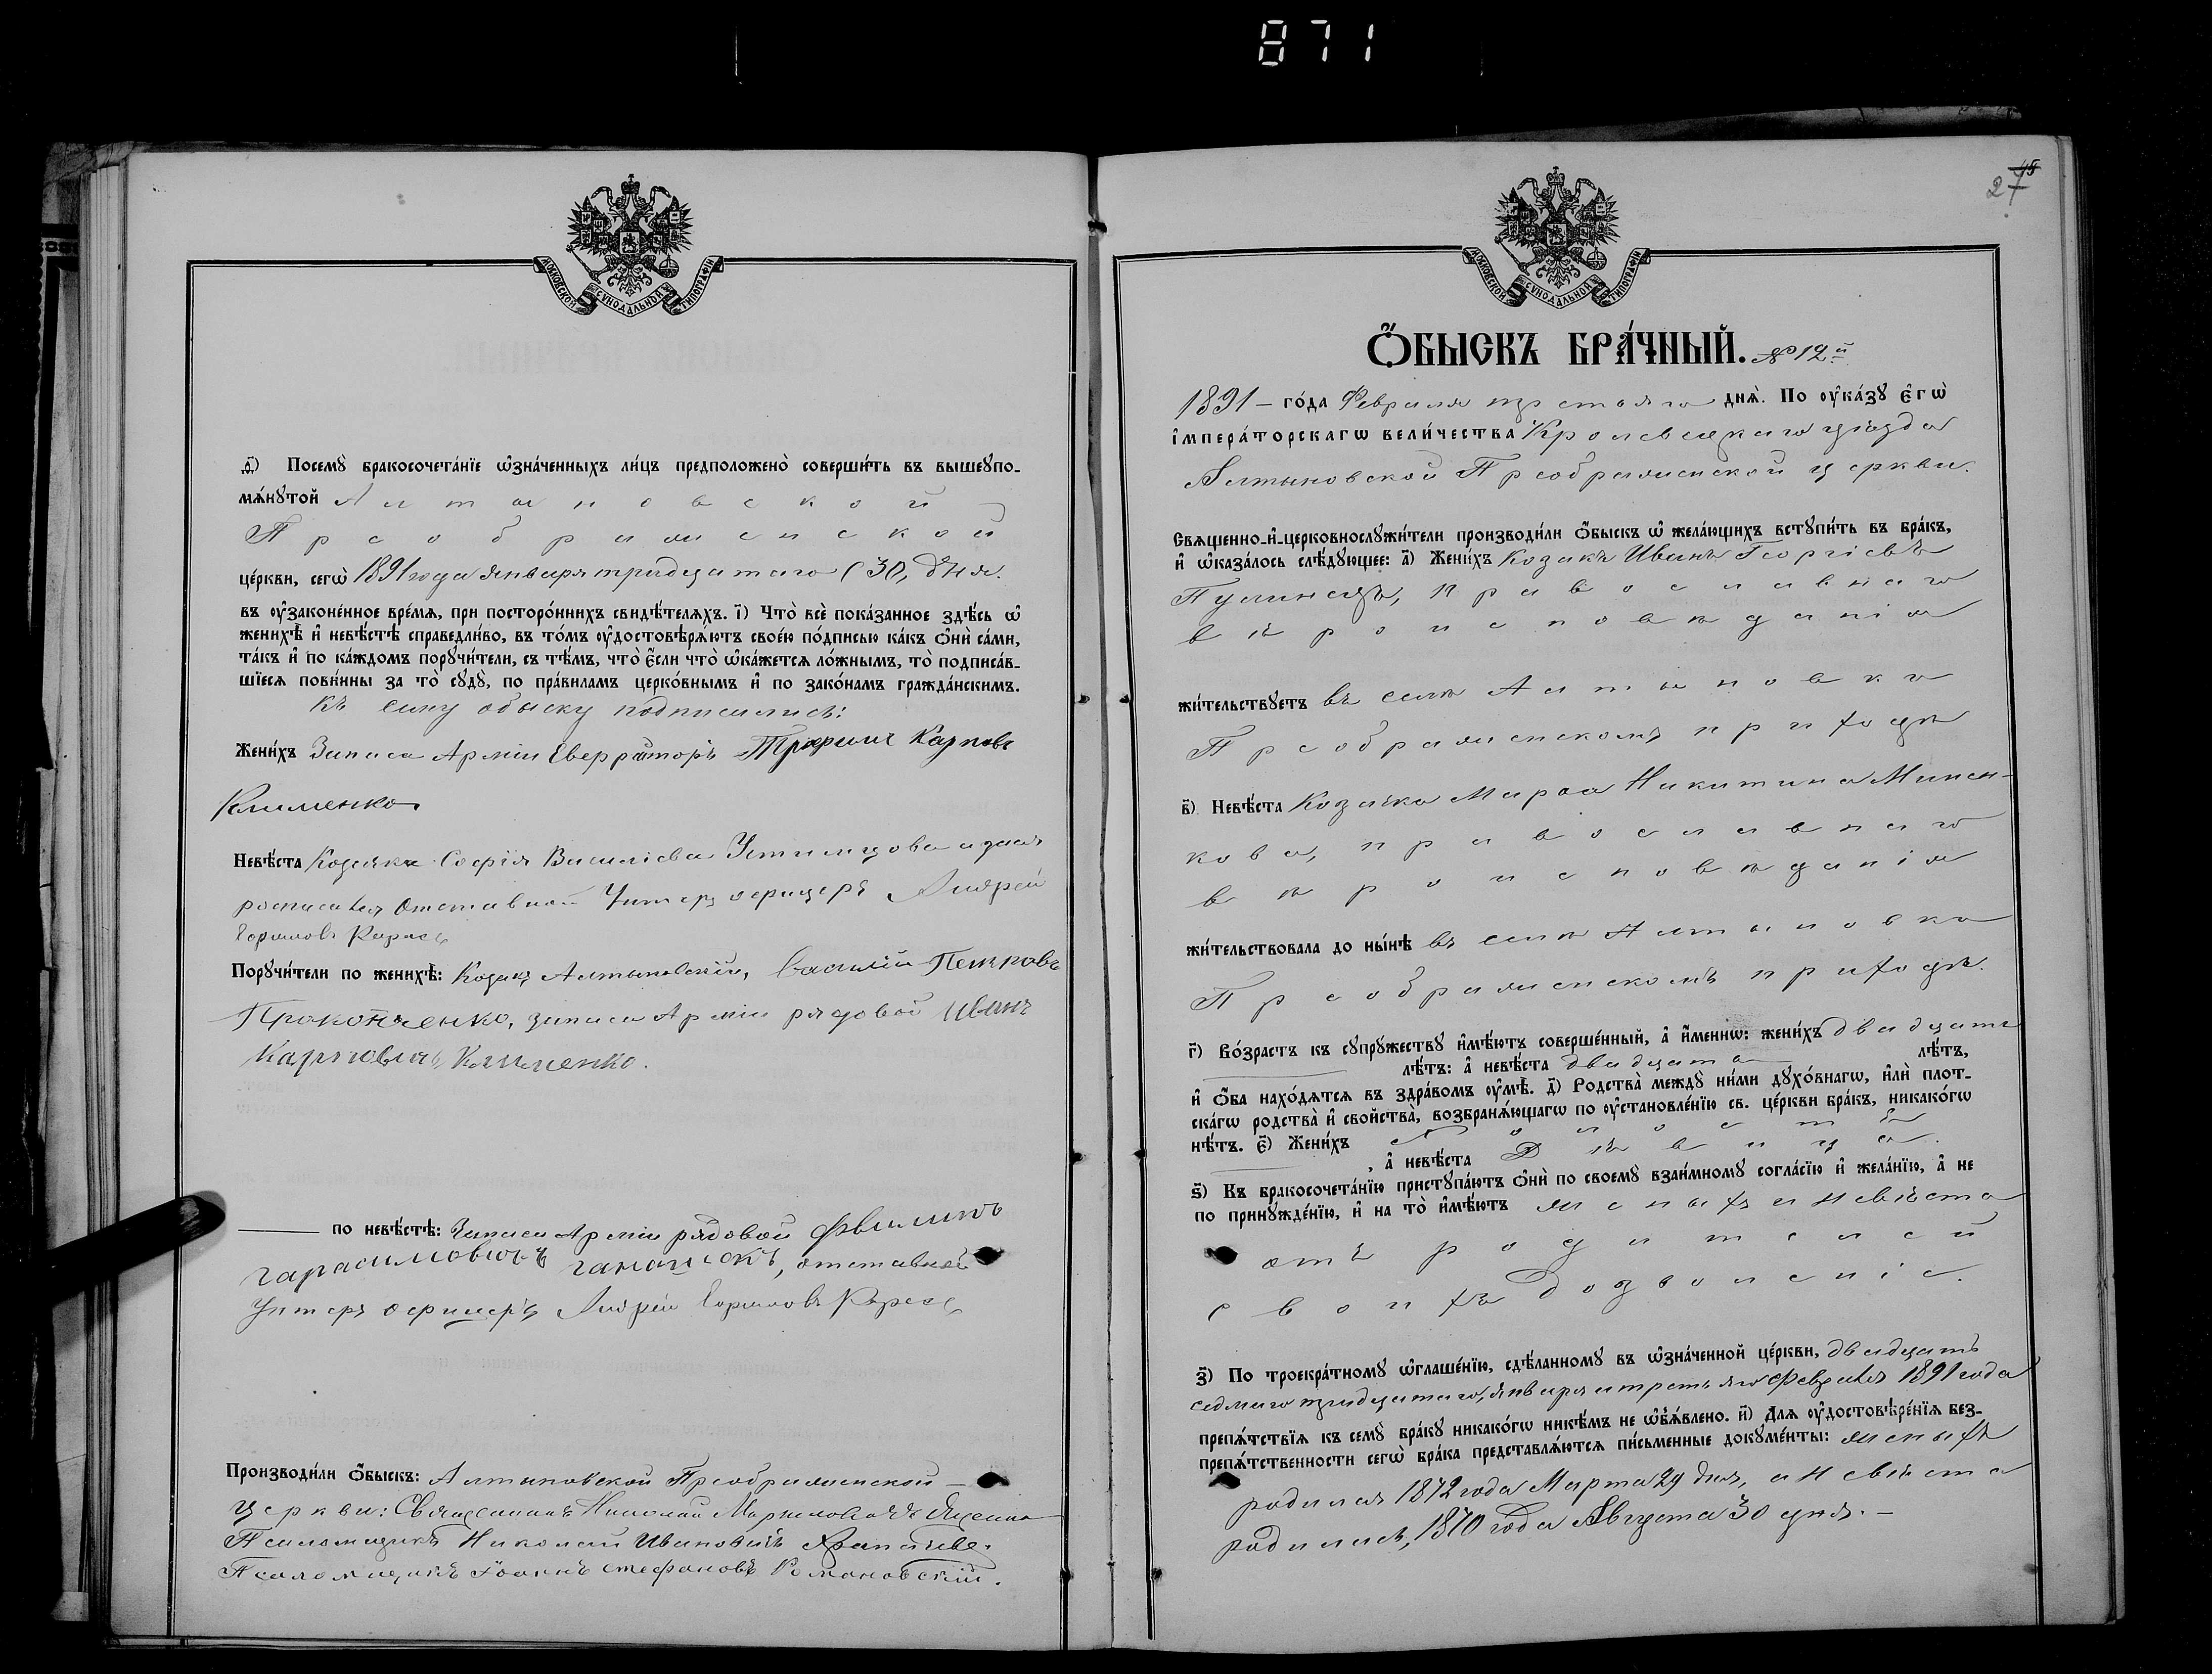 871
МОСКОВСКОЙ СѴНОДАЛЬНОЙ ТИПОГРАФІИ
ѳ҃) Посемꙋ̀ бракосочета́нїе ѡ҆зна́ченныхъ ли́цъ предположено̀ соверши́ть въ вышеꙋпо-
мѧ́нꙋтой Алтыновской
Преображенской
це́ркви, сегѡ̀ 1891 года января тридцатаго (30) дня.
въ ᲂу҆законе́нное вре́мѧ, при посторо́ннихъ свидѣ́телѧхъ. і҃) Что̀ всѐ пока́занное здѣ́сь ѡ҆
женихѣ̀ и҆ невѣ́стѣ справедли́во, въ то́мъ ᲂу҆достовѣрѧ́ютъ свое́ю по́дписью ка́къ ѻ҆нѝ са́ми,
та́къ и҆ по ка́ждомъ порꙋчи́тели, съ тѣ́мъ, что̀ є҆́сли что̀ ѡ҆ка́жетсѧ ло́жнымъ, то̀ подписа́в-
шїесѧ пови́нны за то̀ сꙋдꙋ̀, по пра́виламъ церко́внымъ и҆ по зако́намъ гражда́нскимъ.
Къ сему обыску подписались:
Жени́хъ Запаса Арміи Трофимъ Карповъ
Клименко
Невѣ́ста Козачка Софія Василіева а за нея
росписался Отставной Унтеръ офицеръ Андрей
Порꙋчи́тели по женихѣ̀: Козакъ Алтыновскій, Василій Петровъ
Прокопченко, запаса Арміи рядовой Иванъ
Карповичъ Клименко.
по невѣ́стѣ: Запаса Арміи рядовой Филипъ
отставной
Унтеръ офицеръ Андрей
Производи́ли ѻ҆́быскъ: Алтыновской Преображенской
церкви: Священникъ Николай
Псаломщикъ Николай Ивановичъ
Псаломщикъ Іоаннъ Стефановъ Романовскій.
48
27
МОСКОВСКОЙ СѴНОДАЛЬНОЙ ТИПОГРАФІИ
Ѻ҆́БЫСКЪ БРА́ЧНЫЙ. № 12й
1891 – го́да Февраля третьяго днѧ̀. По ᲂу҆ка́зꙋ є҆гѡ̀
і҆мпера́торскагѡ вели́чества Кролевецкаго уѣзда
Алтыновской Преображенской церкви.
Свѧщенно-и҆-церковнослꙋжи́тели производи́ли ѻ҆́быскъ ѡ҆ жела́ющихъ встꙋпи́ть въ бра́къ,
и҆ ѡ҆каза́лось слѣ́дꙋющее: а҃) Жени́хъ Козакъ Иванъ Георгіевъ
православнаго
вѣроисповѣданія
жи́тельствꙋетъ въ селѣ Алтыновкѣ
Преображенскомъ приходѣ
в҃) Невѣ́ста Козачка Марѳа Никитина Минен-
кова, православнаго
вѣроисповѣданія
жи́тельствовала до ны́нѣ въ селѣ Алтыновкѣ
Преображенскомъ приходѣ.
г҃) Во́зрастъ къ сꙋпрꙋ́жествꙋ и҆мѣ́ютъ соверше́нный, а҆ и҆́меннѡ: жени́хъ двадцать
лѣ́тъ: а҆ невѣ́ста двадцать лѣ́тъ,
и҆ ѻ҆́ба нахо́дѧтсѧ въ здра́вомъ ᲂу҆мѣ̀. д҃) Родства̀ междꙋ̀ ни́ми дꙋхо́внагѡ, и҆лѝ пло́т-
ска́гѡ родства̀ и҆ сво́йства, возбранѧ́ющагѡ по ᲂу҆становле́нїю св. це́ркви бра́къ, никако́гѡ
нѣ́тъ. є҃) Жени́хъ Холостъ
, а҆ невѣ́ста Дѣвица.
ѕ҃) Къ бракосочета́нїю пристꙋпа́ютъ ѻ҆нѝ по своемꙋ̀ взаи́мномꙋ согла́сїю и҆ жела́нїю, а҆ не
по принꙋжде́нїю, и҆ на то̀ и҆мѣ́ютъ женихъ и невѣста
отъ родителей
своихъ дозволеніе.
з҃) По троекра́тномꙋ ѡ҆глаше́нїю, сдѣ́ланномꙋ въ ѡ҆зна́ченной це́ркви, двадцать
седмаго тридцатаго, января и третьяго февраля 1891 года
препѧ́тствїѧ къ семꙋ̀ бра́кꙋ никако́гѡ никѣ́мъ не ѡ҆б̾ѧ́влено. и҃) Длѧ ᲂу҆достовѣре́нїѧ без-
препѧ́тственности сегѡ̀ бра́ка представлѧ́ютсѧ пи́сьменные докꙋме́нты: женихъ
родился 1872 года Марта 29 дня, а невѣста
родилась, 1870 года Августа 30 дня. –